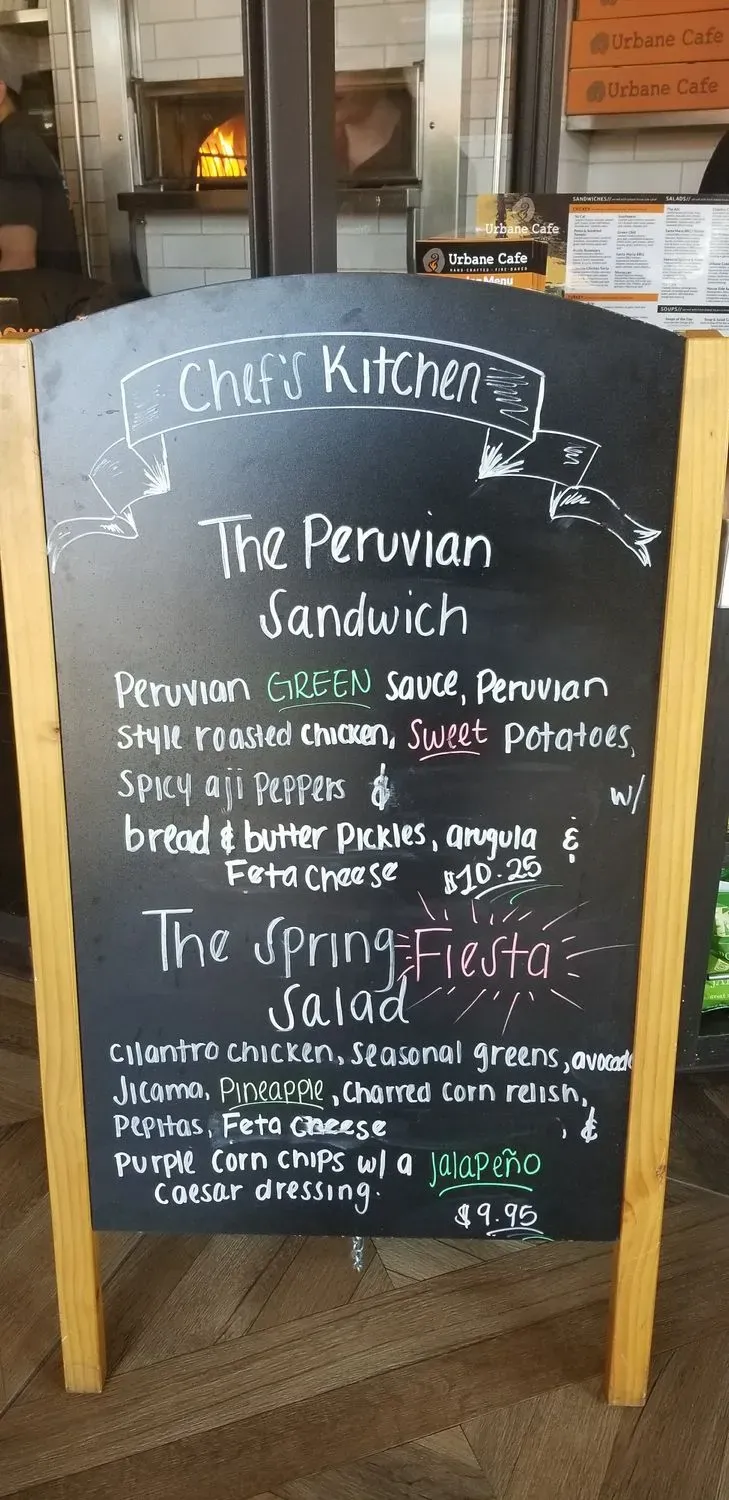 Urbane Cafe
Urbane Cafe
Urbane Cafe
SANDWICHES//
SALADS//
Urbane Cafe
HAND-CRAFTED · FIRE-BAKED
Menu
SOUPS//
Chef's Kitchen
The Peruvian
Sandwich
Peruvian GREEN sauce, Peruvian
style roasted chicken, Sweet Potatoes,
spicy aji peppers & w/
bread & butter pickles, arugula &
Feta cheese $10.25
The Spring Fiesta
Salad
cilantro chicken, seasonal greens, avocado
Jicama, Pineapple, charred corn relish,
Pepitas, Feta cheese , &
purple corn chips w/ a Jalapeño
caesar dressing.
$9.95